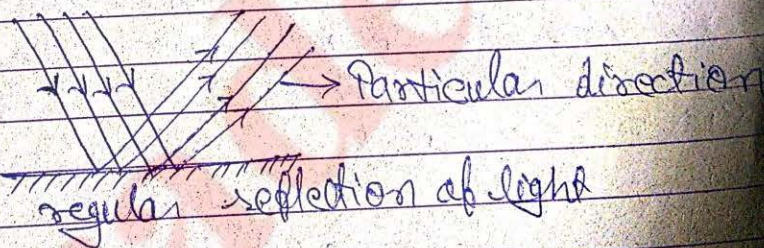 Particular direction
regular reflection of light